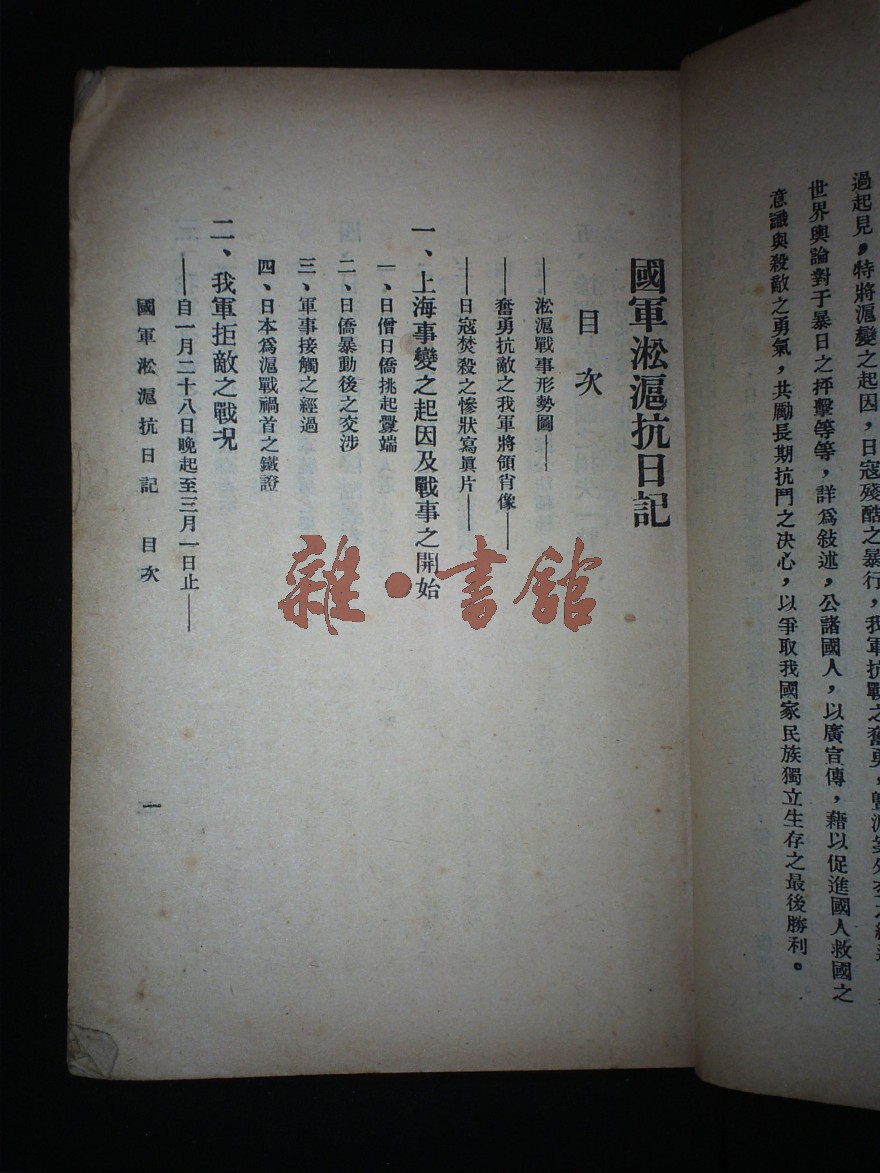 過起見，特將滬變之起因，日寇殘酷之暴行，我軍抗戰之奮勇，暨滬案外交之經過
世界輿論對于暴日之抨擊等等，詳爲敍述，公諸國人，以廣宣傳，藉以促進國人救國之
意識與殺敵之勇氣，共勵長期抗鬥之決心，以爭取我國家民族獨立生存之最後勝利。
國軍淞滬抗日記
目次
——淞滬戰事形勢圖——
——奮勇抗敵之我軍將領肖像——
——日寇焚殺之慘狀寫眞片——
一、上海事變之起因及戰事之開始
一、日僧日僑挑起釁端
二、日僑暴動後之交涉
三、軍事接觸之經過
四、日本爲滬戰禍首之鐵證
二、我軍拒敵之戰况
——自一月二十八日晚起至三月一日止——
國軍淞滬抗日記 目次
一
雜·書館